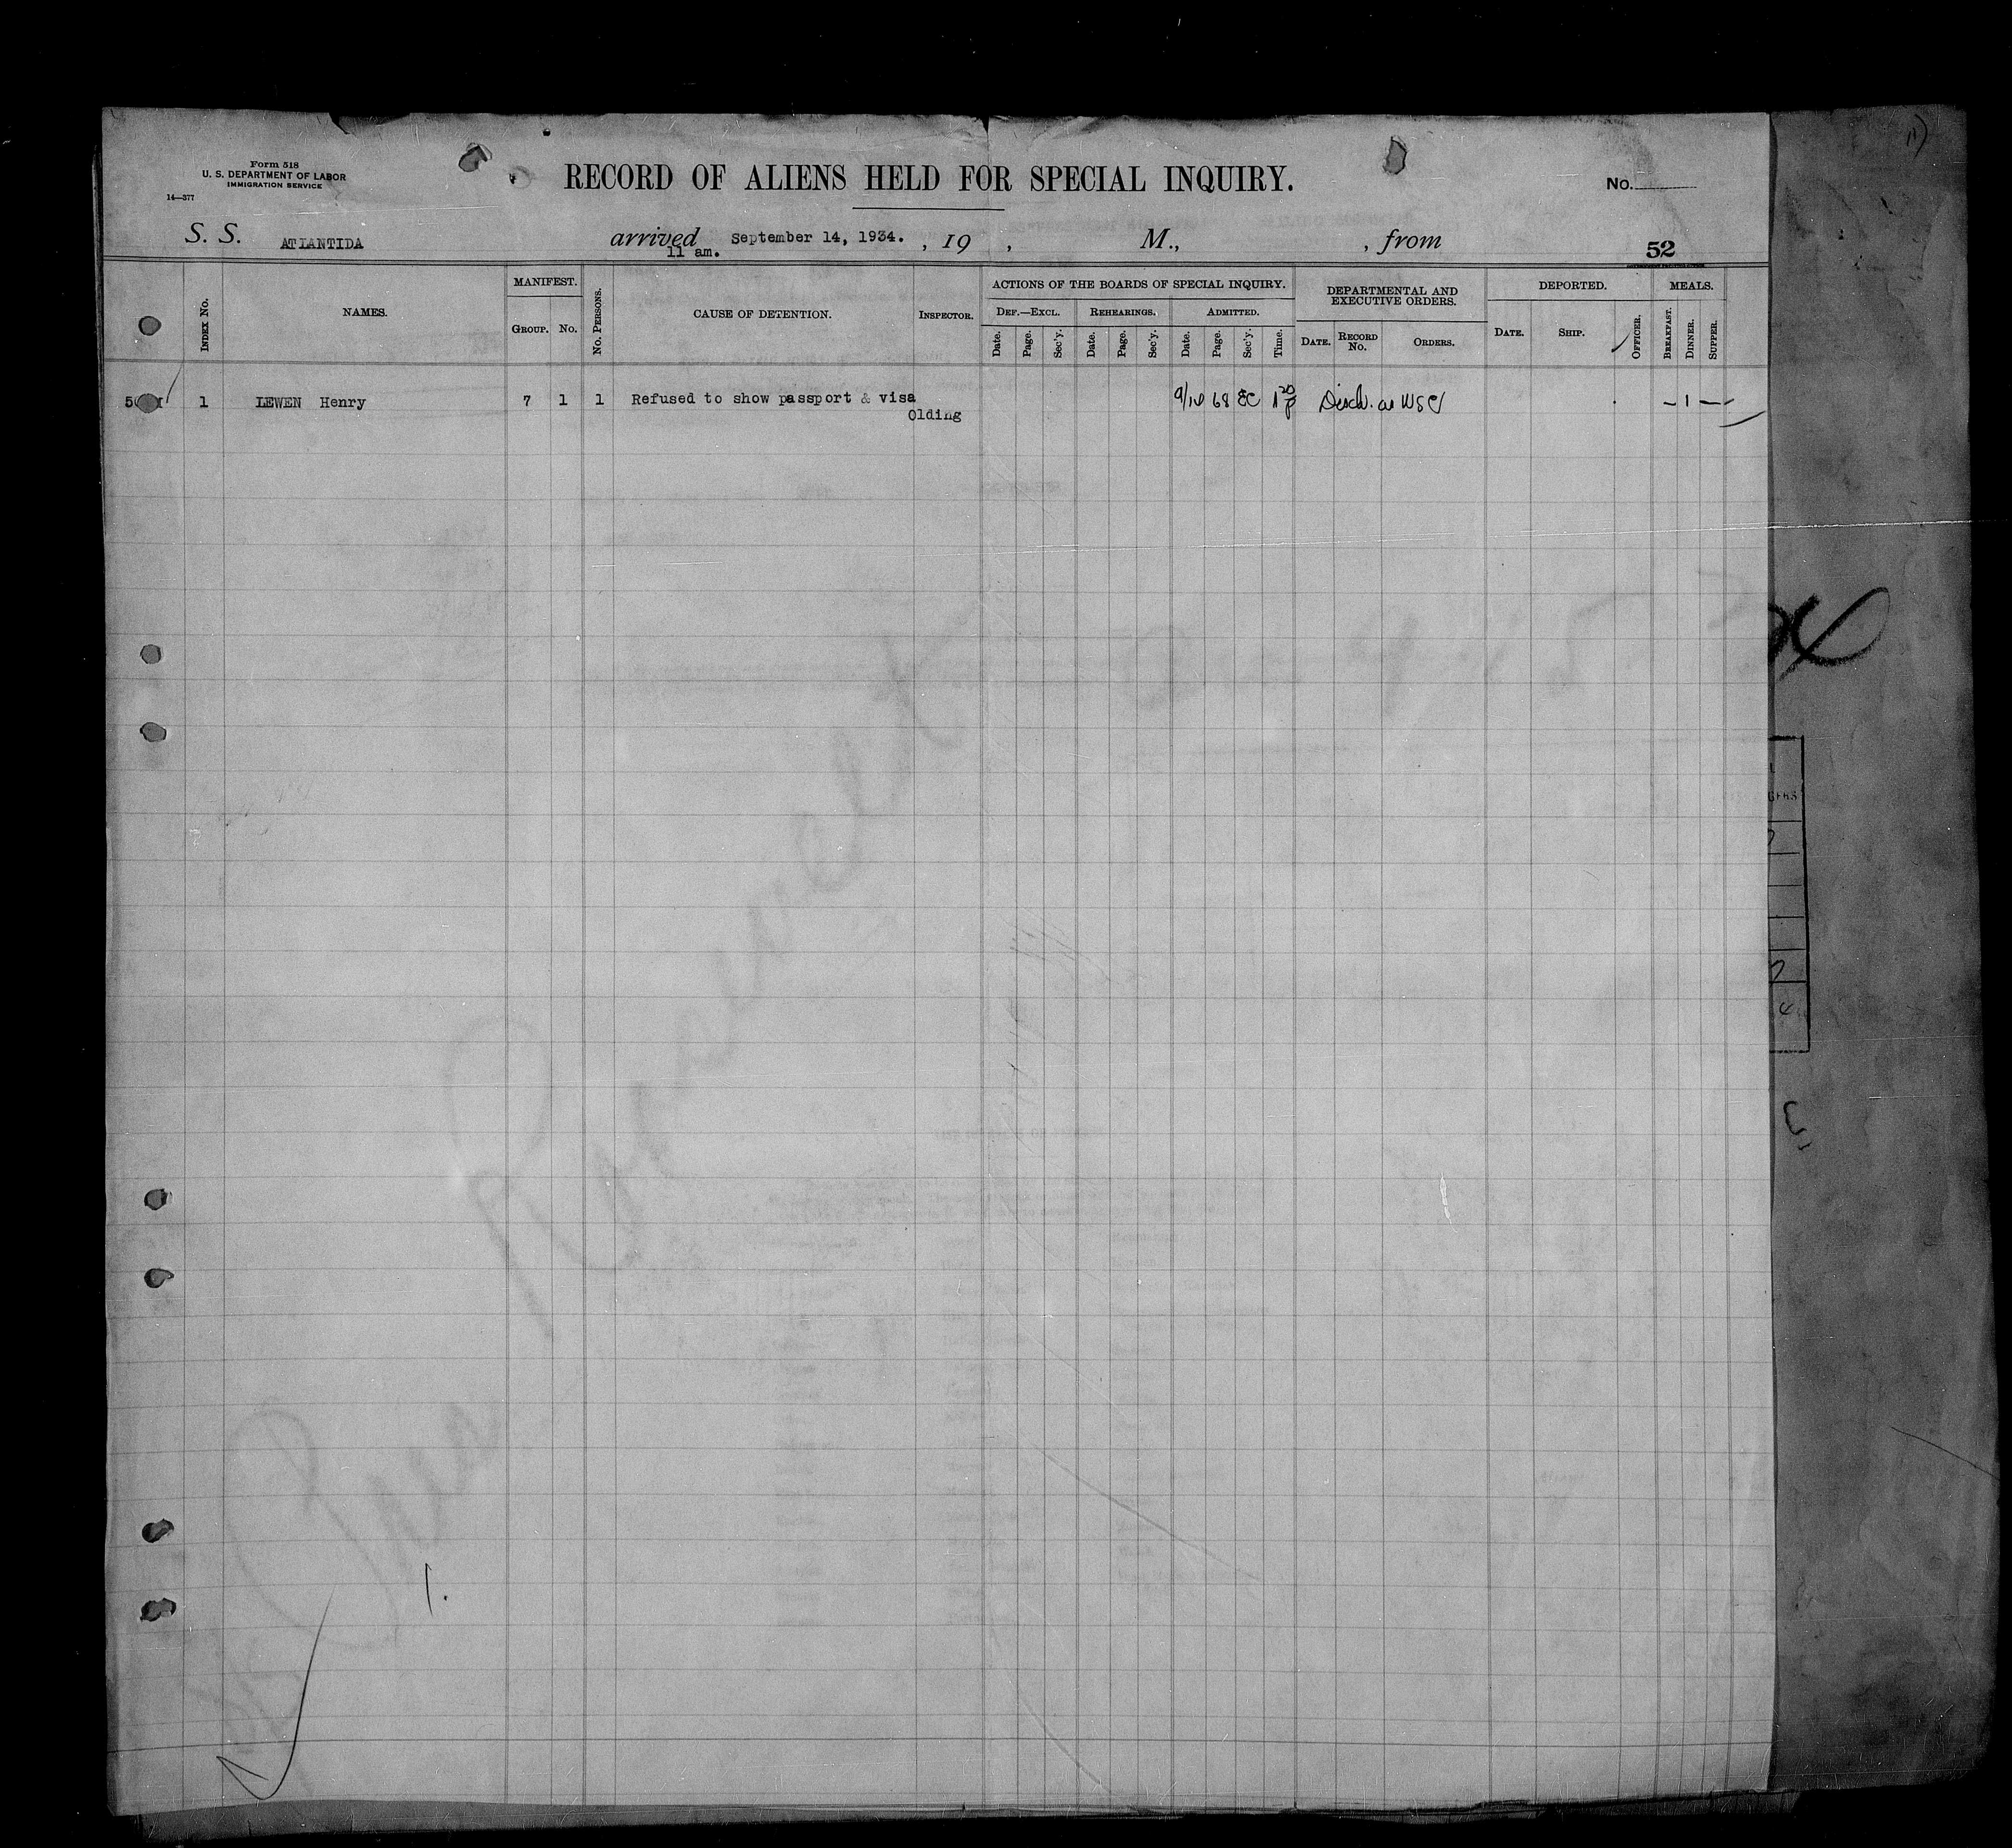 Form 518
U. S. DEPARTMENT OF LABOR
IMMIGRATION SERVICE
14—377
RECORD OF ALIENS HELD FOR SPECIAL INQUIRY.
No.
S. S. ATLANTIDA arrived September 14, 1934. , 19 , M., , from
11 am.
52
Index No.
NAMES.
MANIFEST.
Group. No.
No. Persons.
CAUSE OF DETENTION.
Inspector.
ACTIONS OF THE BOARDS OF SPECIAL INQUIRY.
Def.—Excl. Rehearings. Admitted.
Date. Page. Sec'y. Date. Page. Sec'y. Date. Page. Sec'y. Time.
DEPARTMENTAL AND
EXECUTIVE ORDERS.
Date. Record No. Orders.
DEPORTED.
Date. Ship. Officer.
MEALS.
Breakfast. Dinner. Supper.
1 LEWEN Henry 7 1 1 Refused to show passport & visa 9/14 68 EC 1 20 p Disch. as USC – 1 –
Olding
1.